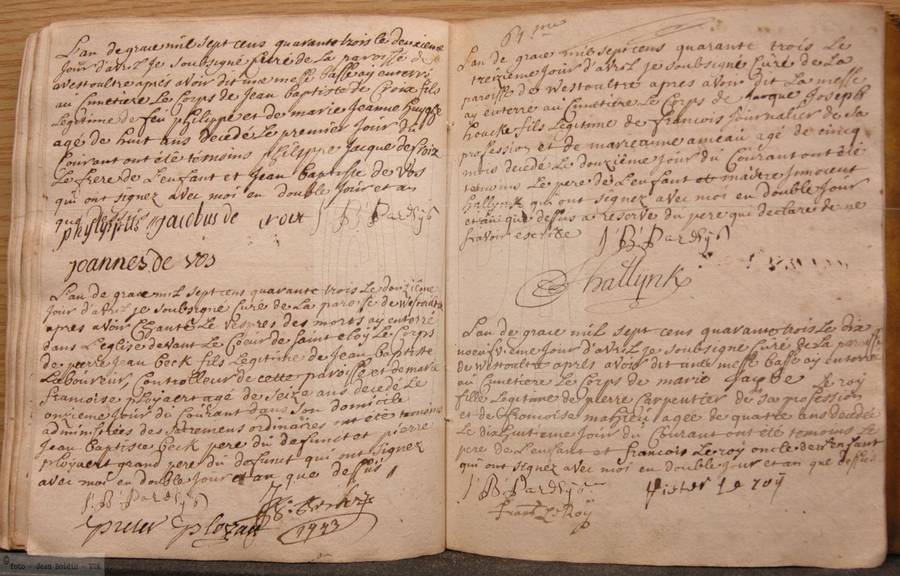 L'an de grace mil sept cens quarante trois le deuxieme
jour d'avril je soubsigné curé de la paroisse de
westoultre aprés avoir dit une messe basse ay enterré
au cimetiere le corps de jean baptiste de Croix fils
Legitime de feu philippe et de marie jeanne
agé de huit ans decedé le premier jour du
courant ont été temoins philippe jacque de Croix
Le frere de L'enfant et jean baptiste de vos
qui ont signez avec moi en double jour et an
que
philippus jacobus de croix J: B: Pardijs
joannes de vos
L'an de grace mil sept cens quarante trois le douzième
jour d'avril je soubsigné curé de La paroisse de westoultre
aprés avoir chanté Le vespres des morts ay enterré
dans L'eglise devant Le Coeur de saint eloy Le Corps
de pierre jean Beck fils Legitime de jean baptiste
Laboureur, Controlleur de cette paroisse et de marie
francoise ployaert agé de seize ans decedé Le
onzieme jour du Courant dans son domicile
administrées des sacremens ordinaires ont été temoins
jean baptiste Beck pere du defunct et pierre
ployaert grand pere du defunct qui ont signez
avec moi en double jour et an que dessus
J: B: Pardijs
pieter ployaert
1743
L'an de grace mil sept cens quarante trois Le
treizieme jour d'avril je soubsigné curé de La
paroisse de westoultre apres avoir dit La messe
ay enterré au cimetiere Le Corps de jacque joseph
houcke fils Legitime de francois journalier de sa
profession et de marie anne ameau agé de cincq
mois decedé Le douzième jour du Courant ont été
temoins Le pere de L'enfant et maitre innocent
hallynk qui ont signez avec moi en double jour
et an que dessus a reserve du pere qui declare de ne
scavoir escrire J: B: Pardijs
hallynk
L'an de grace mil sept cens quarante trois Le dix
neuifvieme jour d'avril je soubsigné Curé de La paroisse
de westoultre apres avoir dit une messe basse ay enterré
au Cimetiere Le Corps de marie Le roy
fille Legitime de pierre Carpentier de sa profession
et de francoise agée de quatre ans decedée
Le dixhuitieme jour du Courant ont été temoins Le
pere de L'enfant et francois Le roy oncle de L'enfant
qui ont signez avec moi en double jour et an que dessus
J: B: Pardijs pieter Le roy
Le Roy
© foto - Jean Boidin - VVF